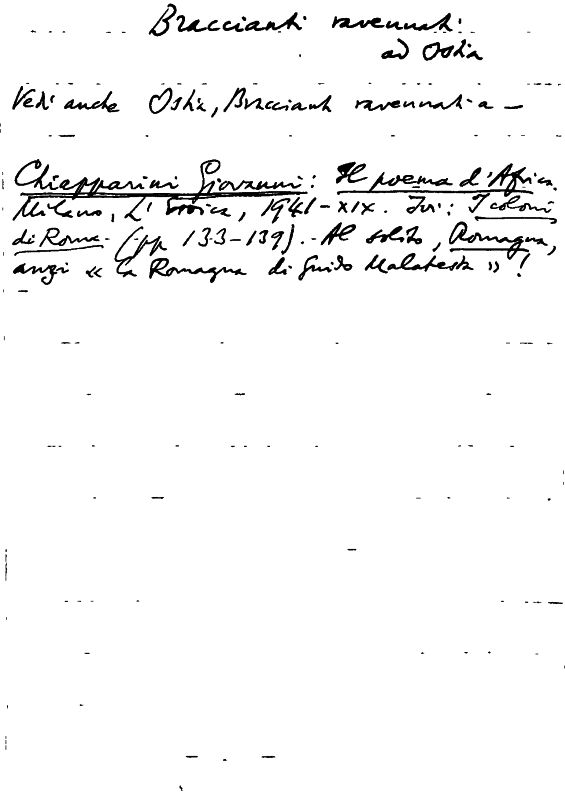 Braccianti ravennati
ad Ostia
Vedi anche Ostia, Braccianti ravennati a –
Chiapparini Giovanni: Il poema d'Africa.
Milano, L'Eroica, 1941-XIX. Ivi: I coloni
di Roma. (pp 133-139). - Al solito, Romagna,
anzi « la Romagna di Guido Malatesta » !